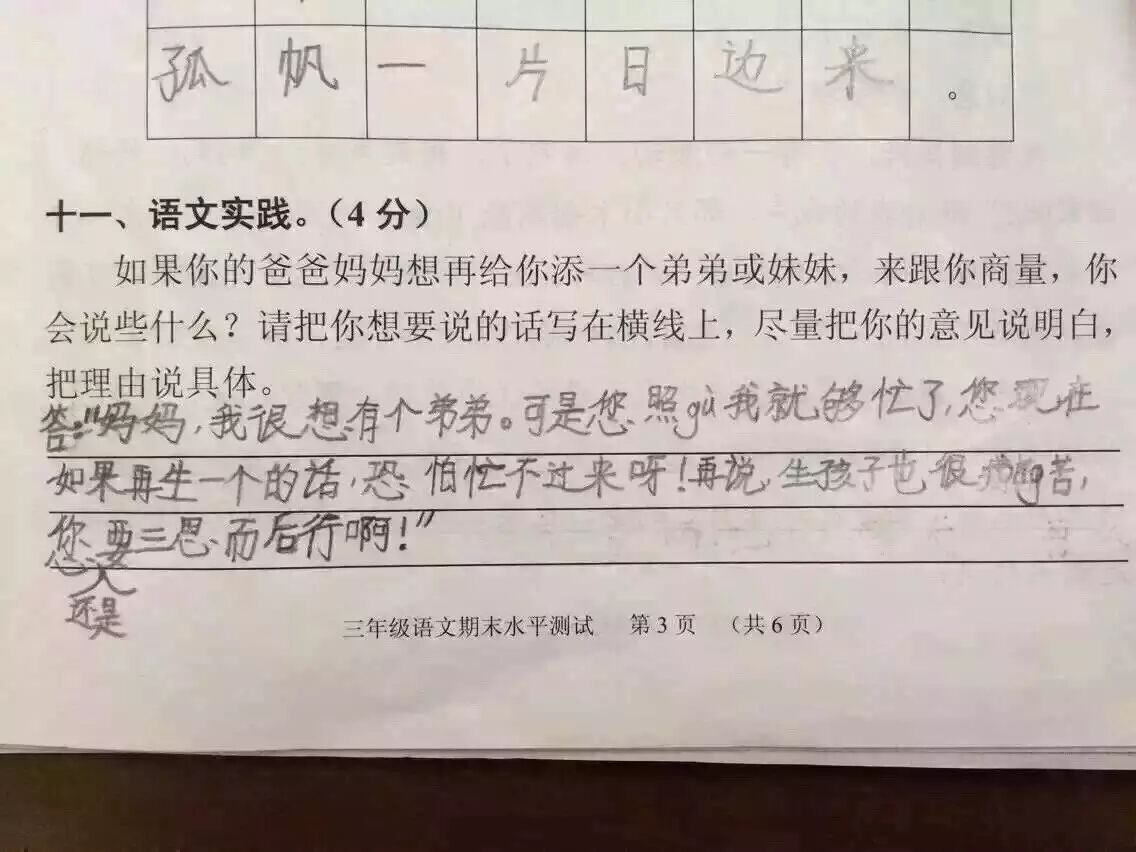 孤帆一片日边来。
十一、语文实践。（4分）
如果你的爸爸妈妈想再给你添一个弟弟或妹妹，来跟你商量，你
会说些什么？请把你想要说的话写在横线上，尽量把你的意见说明白，
把理由说具体。
答:“妈妈，我很想有个弟弟。可是您照gù我就够忙了，您现在
如果再生一个的话，恐怕忙不过来呀！再说，生孩子也很痛苦，
您要三思而后行啊！”
还是
三年级语文期末水平测试 第3页 （共6页）